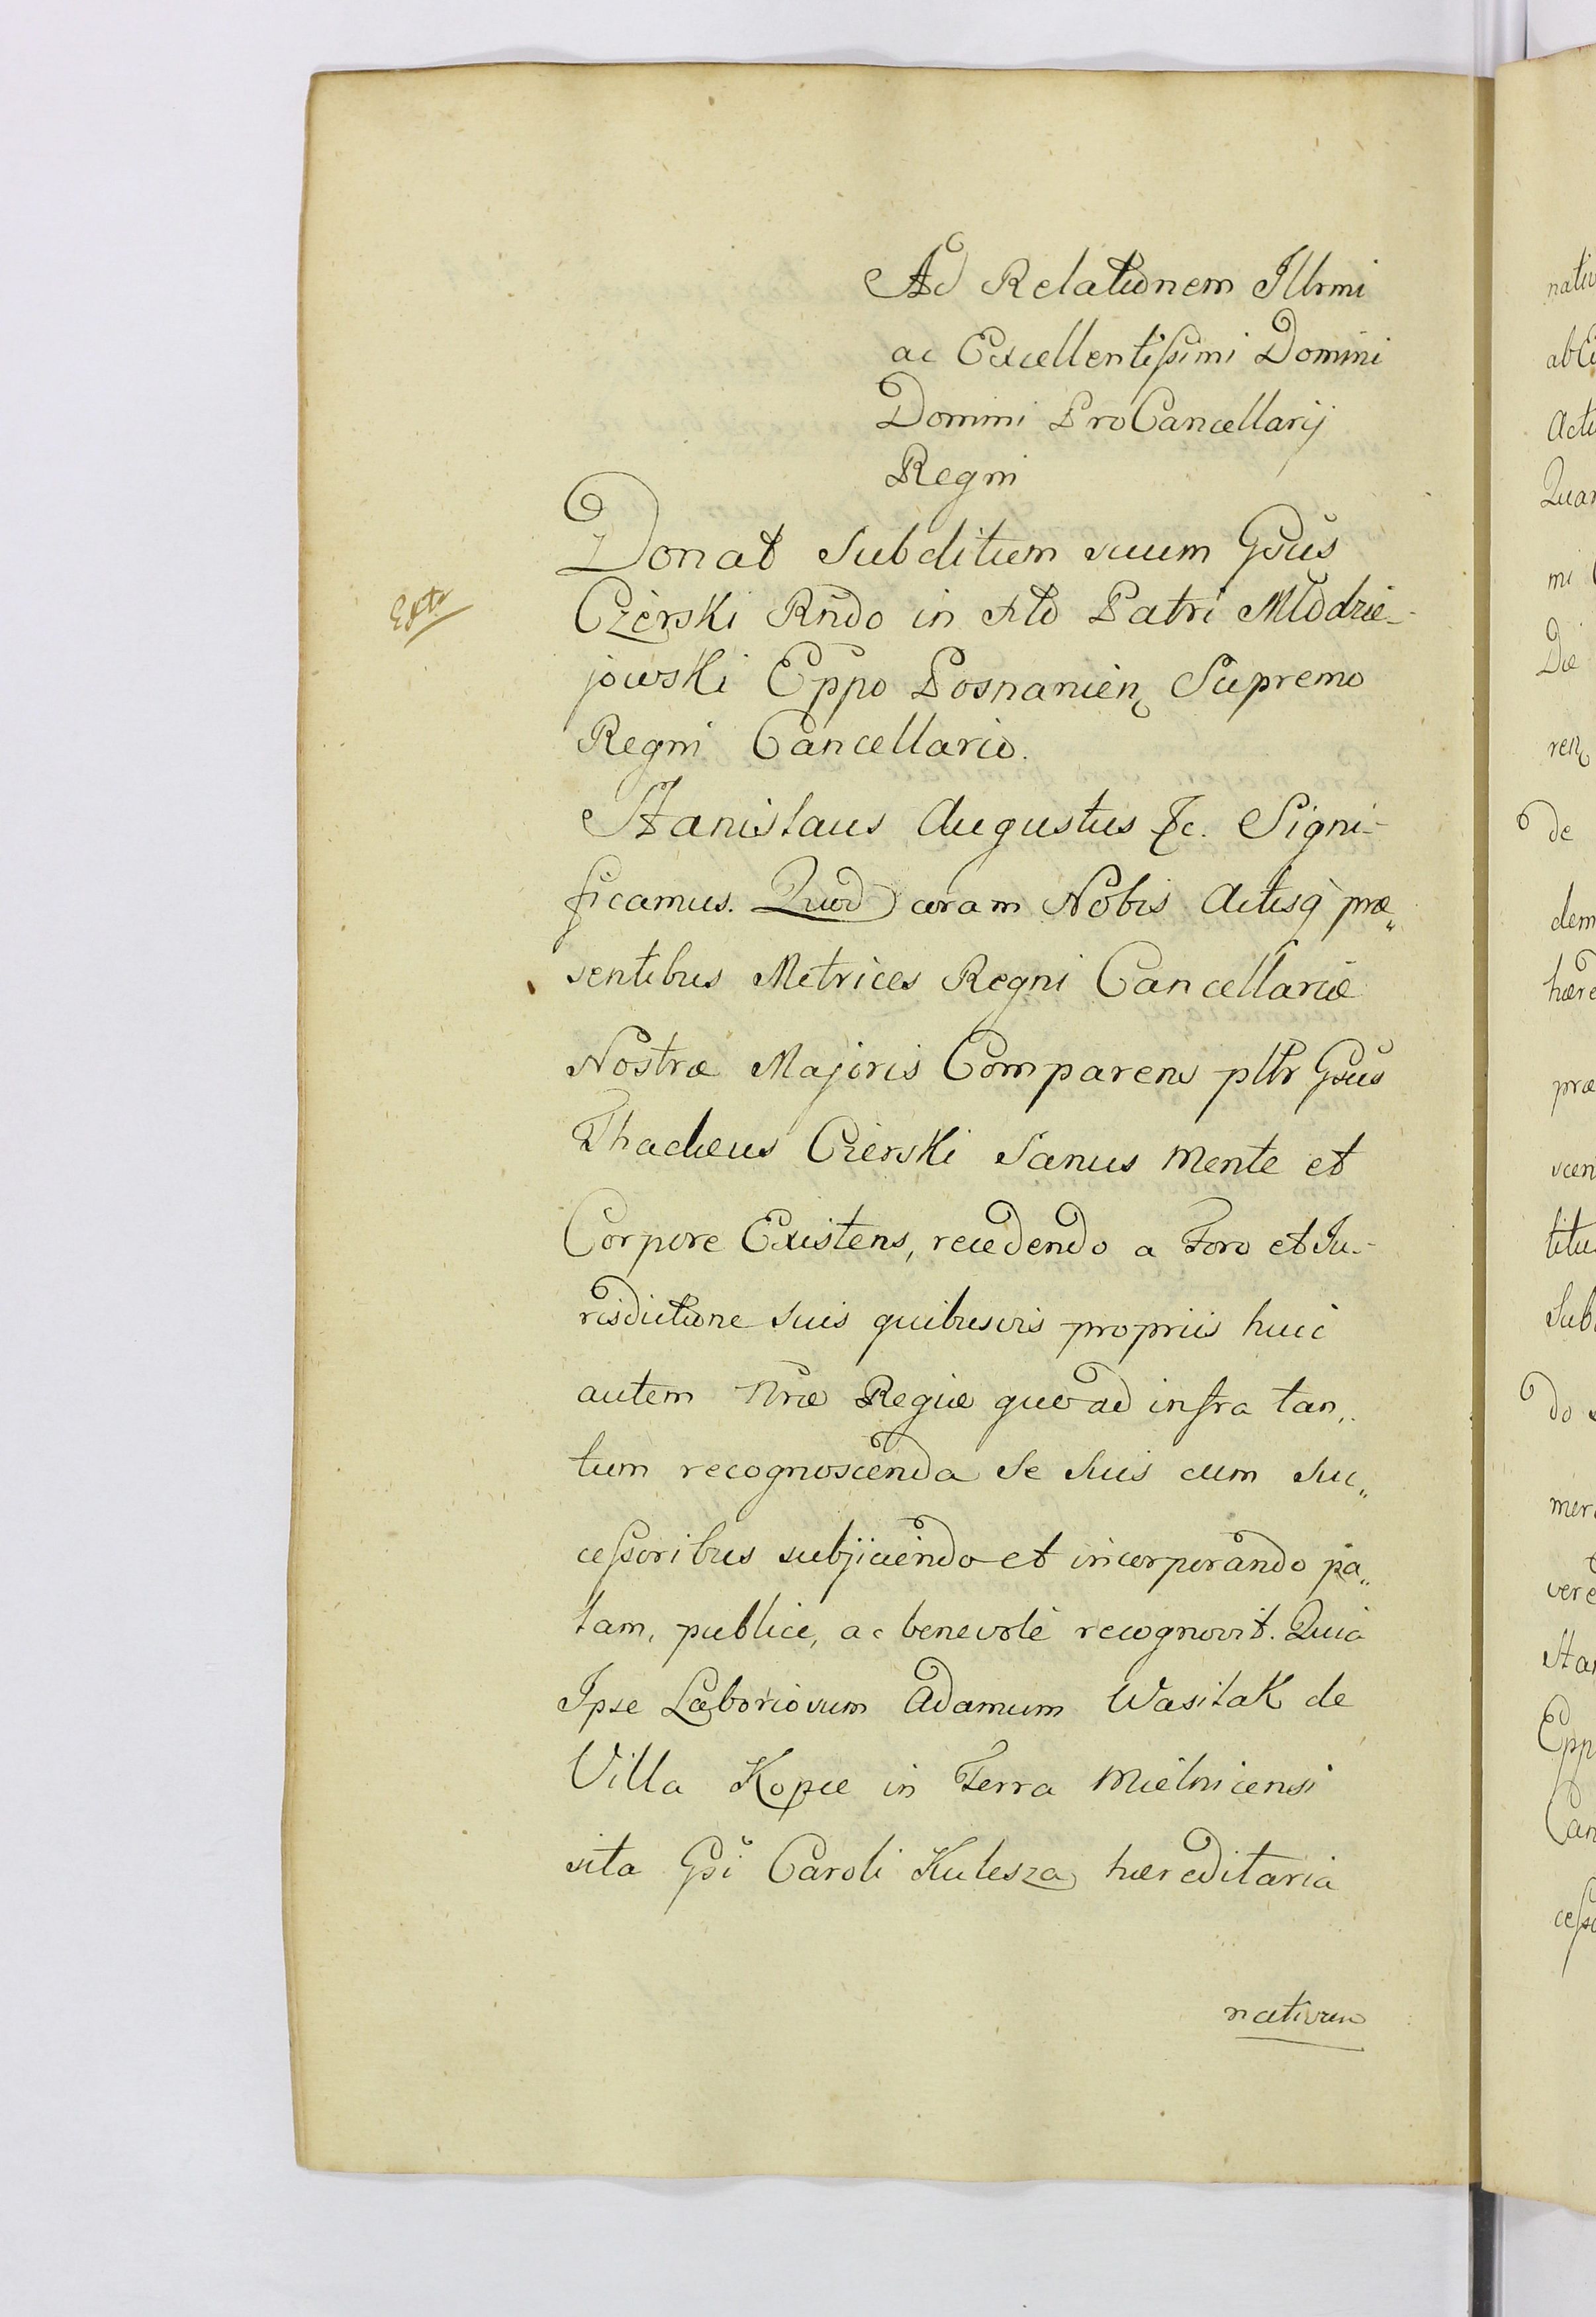 Ad Relationem Illrmi
ac Excellentissimi Domini
Domini ProCancellarij
Regni
Donat Subditum suum Gsus
Czerski Rndo in Xto Patri Młodzie-
jowski Eppo Posnanien Supremo
Regni Cancellario.
Extr
Stanislaus Augustus &c. Signi-
ficamus. Quod coram Nobis Actisq præ„
sentibus Metrices Regni Cancellariæ
Nostræ Majoris Comparens pltr Gsus
Thadeus Czerski Sanus mente et
Corpore Existens, recedendo a Foro et Ju-
risdictione suis quibusvis propriis huic
autem Nræ Regiæ quo ad infra tan„
tum recognoscenda Se Suis cum Suc„
cessoribus subjiciendo et incorporando pa„
lam, publice, ac benevole recognovit. Quia
Ipse Laboriosum Adamum Wasilak de
Villa Kopce in Terra Mielnicensi
sita Gsi Caroli Kulesza hæreditaria
nativum
nativ
Acti
Quan
mi
Die
ren
de
dem
hære
præ
scen
titu
Sub
do
mer
vere
Sta
Epp
Can
cess